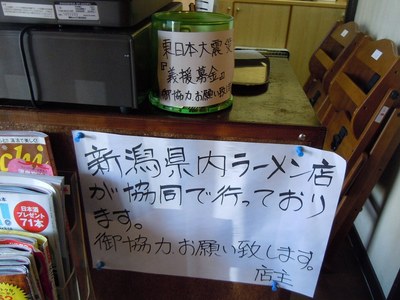 東日本大震災
『義援募金』
御協力お願い致
新潟県内ラーメン店
が協同で行っており
ます。
御協力お願い致します。
店主
日本酒
プレゼント
71本